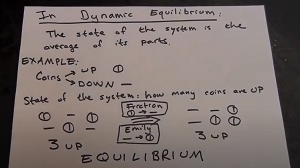 In Dynamic Equilibrium:
The state of the system is the
average of its parts.
EXAMPLE:
Coins → UP ①
→ DOWN —
State of the system: how many coins are UP
Friction
① → —
Emily
— → ①
3 UP
3 UP
EQUILIBRIUM